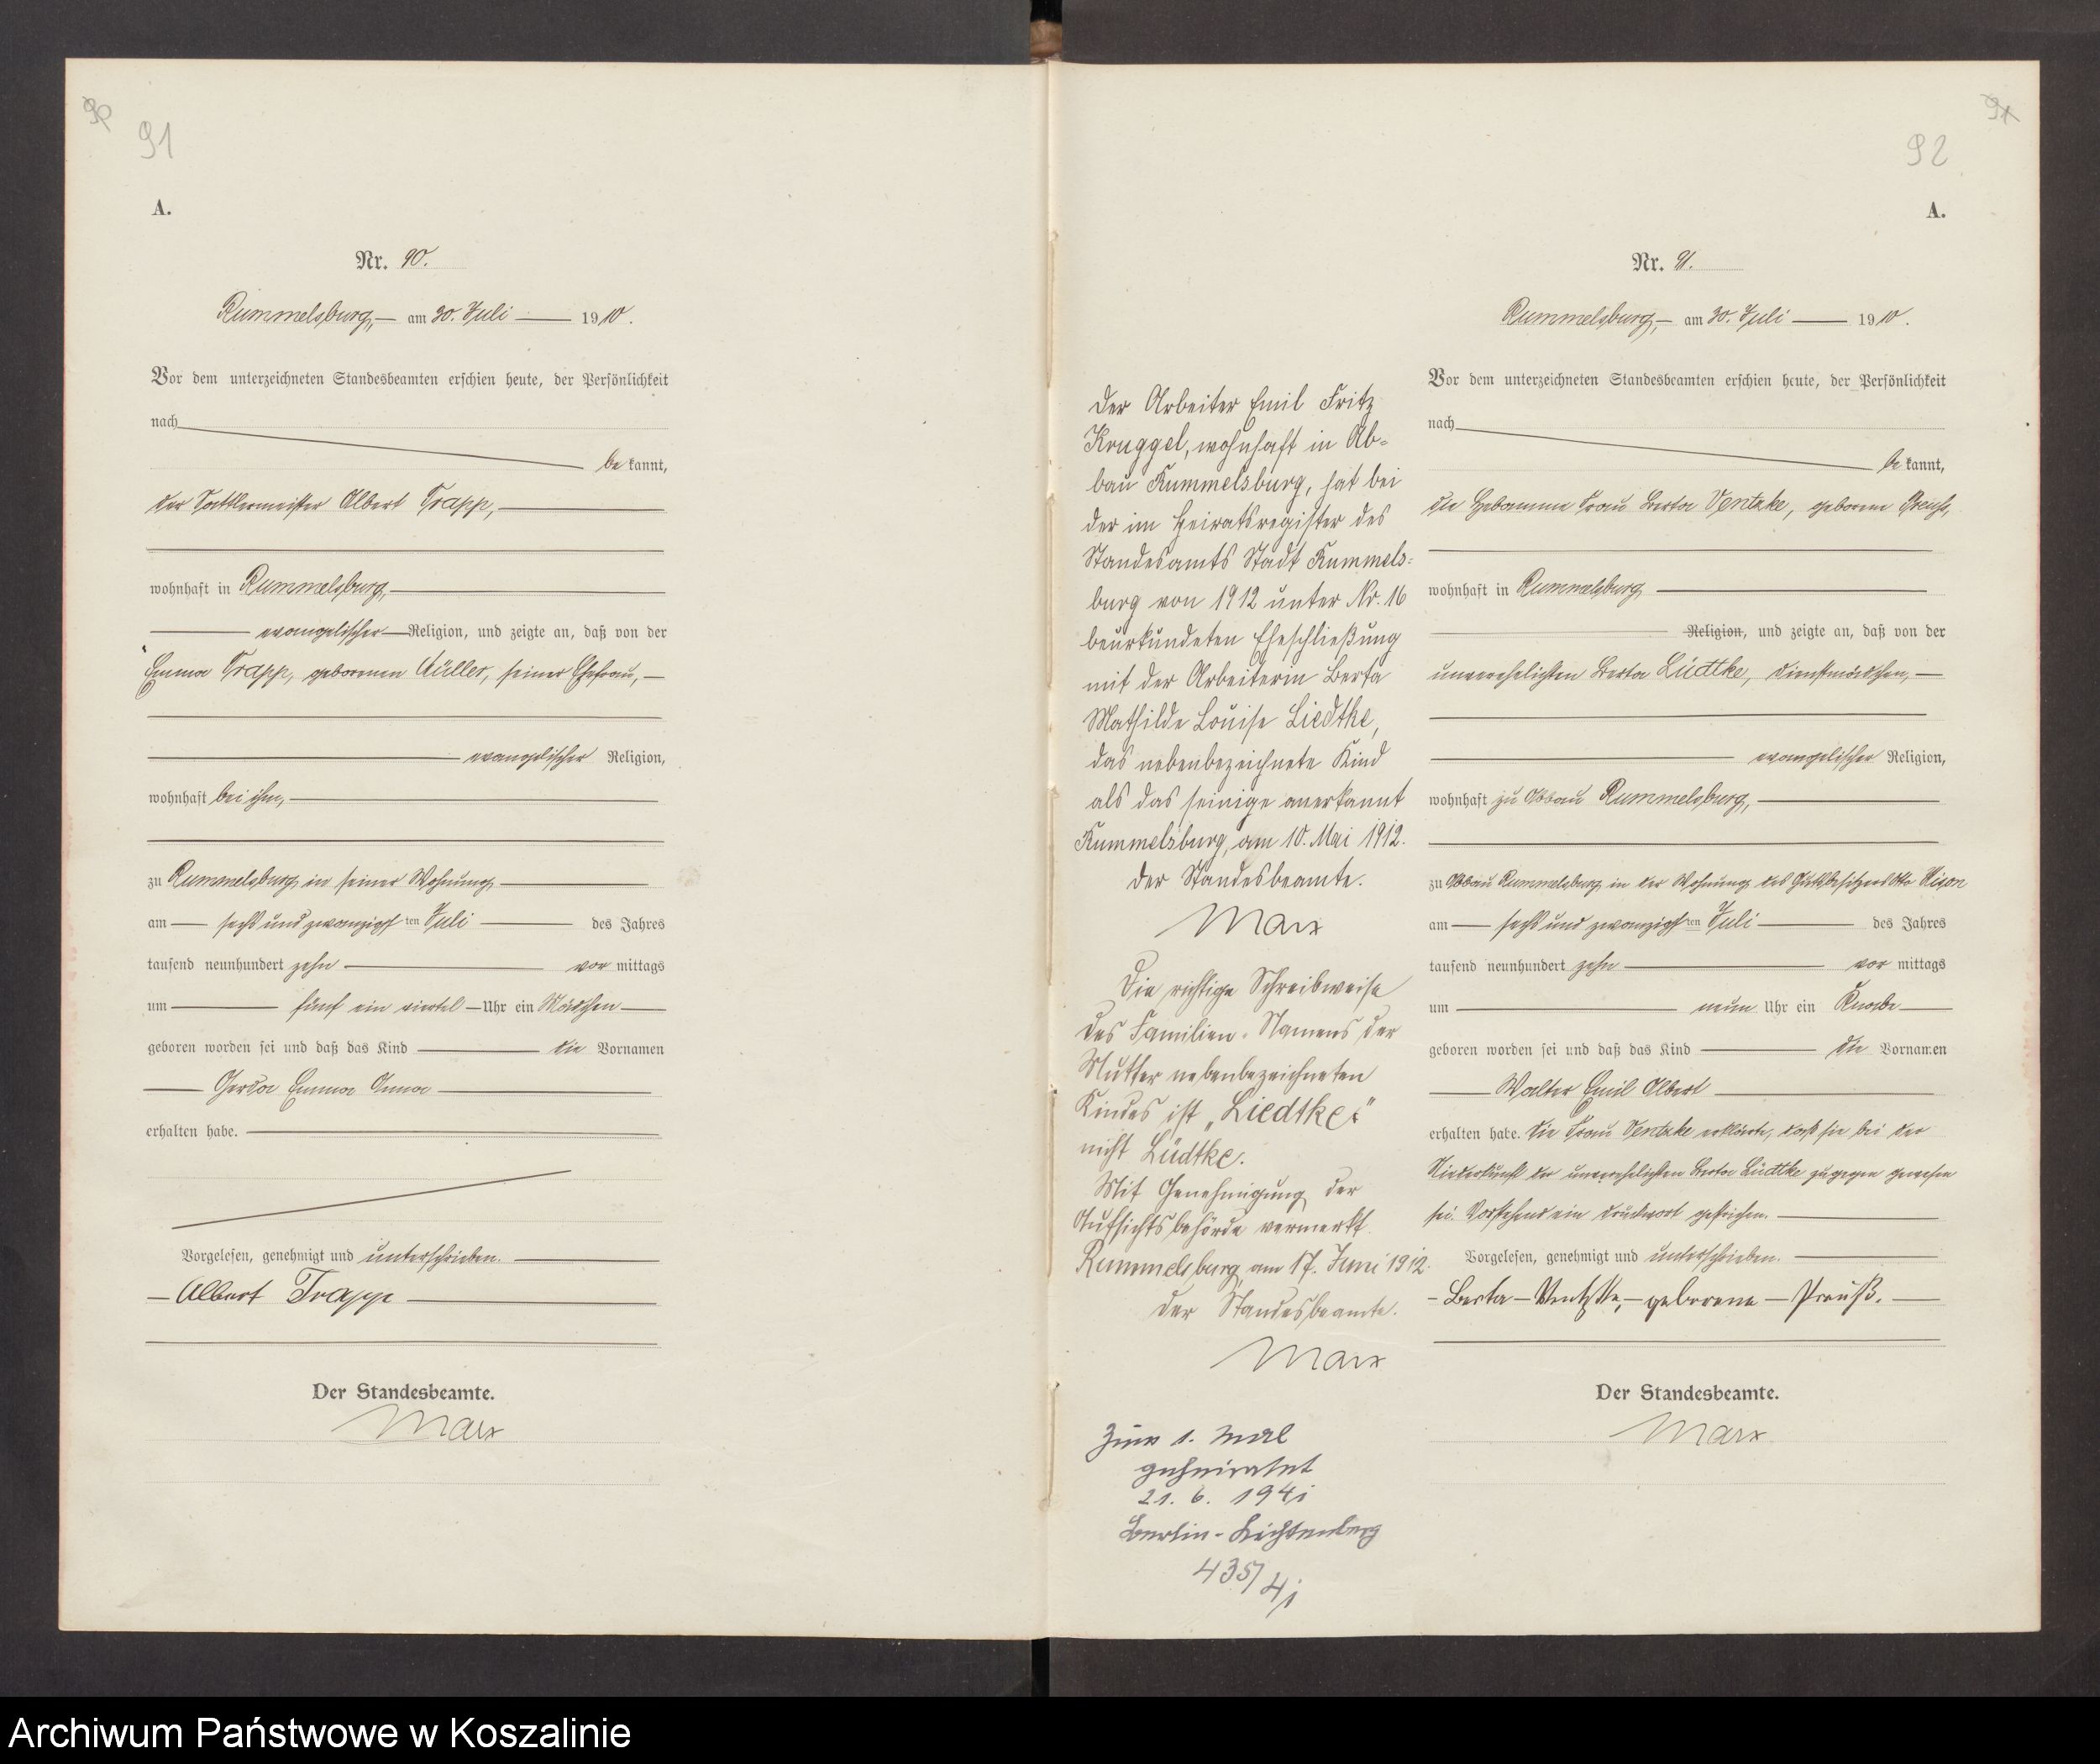 90
91
A.
Nr. 90.
Rummelsburg, am 30. Juli 1910.
Vor dem unterzeichneten Standesbeamten erschien heute, der Persönlichkeit
nach
be kannt,
der Sattlermeister Albert Trapp,
wohnhaft in Rummelsburg,
evangelischer Religion, und zeigte an, daß von der
Emma Trapp, geborenen Müller, seiner Ehefrau,
evangelischer Religion,
wohnhaft bei ihm,
zu Rummelsburg in seiner Wohnung
am sechs und zwanzigsten Juli des Jahres
tausend neunhundert zehn vor mittags
um fünf ein viertel Uhr ein Mädchen
geboren worden sei und daß das Kind die Vornamen
Gerda Emma Anna
erhalten habe.
Vorgelesen, genehmigt und unterschrieben.
Albert Trapp
Der Standesbeamte.
Marx
Der Arbeiter Emil Fritz
Kruggel, wohnhaft in Ab=
bau Rummelsburg, hat bei
der im Heiratsregister des
Standesamts Stadt Rummels=
burg von 1912 unter Nr. 16
beurkundeten Eheschließung
mit der Arbeiterin Berta
Mathilde Louise Liedtke,
das nebenbezeichnete Kind
als das seinige anerkannt
Rummelsburg, am 10. Mai 1912.
Der Standesbeamte.
Marx
Die richtige Schreibweise
des Familien-Namens der
Mutter nebenbezeichneten
Kindes ist „Liedtke"
nicht Lüdtke.
Mit Genehmigung der
Aufsichtsbehörde vermerkt.
Rummelsburg, am 17. Juni 1912.
Der Standesbeamte.
Marx
Zum 1. Mal
geheiratet
21. 6. 1941
Berlin-Lichtenberg
435/41
91
92
A.
Nr. 91.
Rummelsburg, am 30. Juli 1910.
Vor dem unterzeichneten Standesbeamten erschien heute, der Persönlichkeit
nach
be kannt,
die Hebamme Frau Berta Ventzke, geborene Preuß,
wohnhaft in Rummelsburg
Religion, und zeigte an, daß von der
unverehelichten Berta Lüdtke, Dienstmädchen,
evangelischer Religion,
wohnhaft zu Abbau Rummelsburg,
zu Abbau Rummelsburg in der Wohnung des Gutsbesitzers Otto
am sechs und zwanzigsten Juli des Jahres
tausend neunhundert zehn vor mittags
um neun Uhr ein Knabe
geboren worden sei und daß das Kind die Vornamen
Walter Emil Albert
erhalten habe. Die Frau Ventzke erklärte, daß sie bei der
Niederkunft der unverehelichten Berta Lüdtke zugegen gewesen
sei. Vorstehend ein Druckwort gestrichen.
Vorgelesen, genehmigt und unterschrieben.
Berta Ventzke, geborene Preuß.
Der Standesbeamte.
Marx
Archiwum Państwowe w Koszalinie